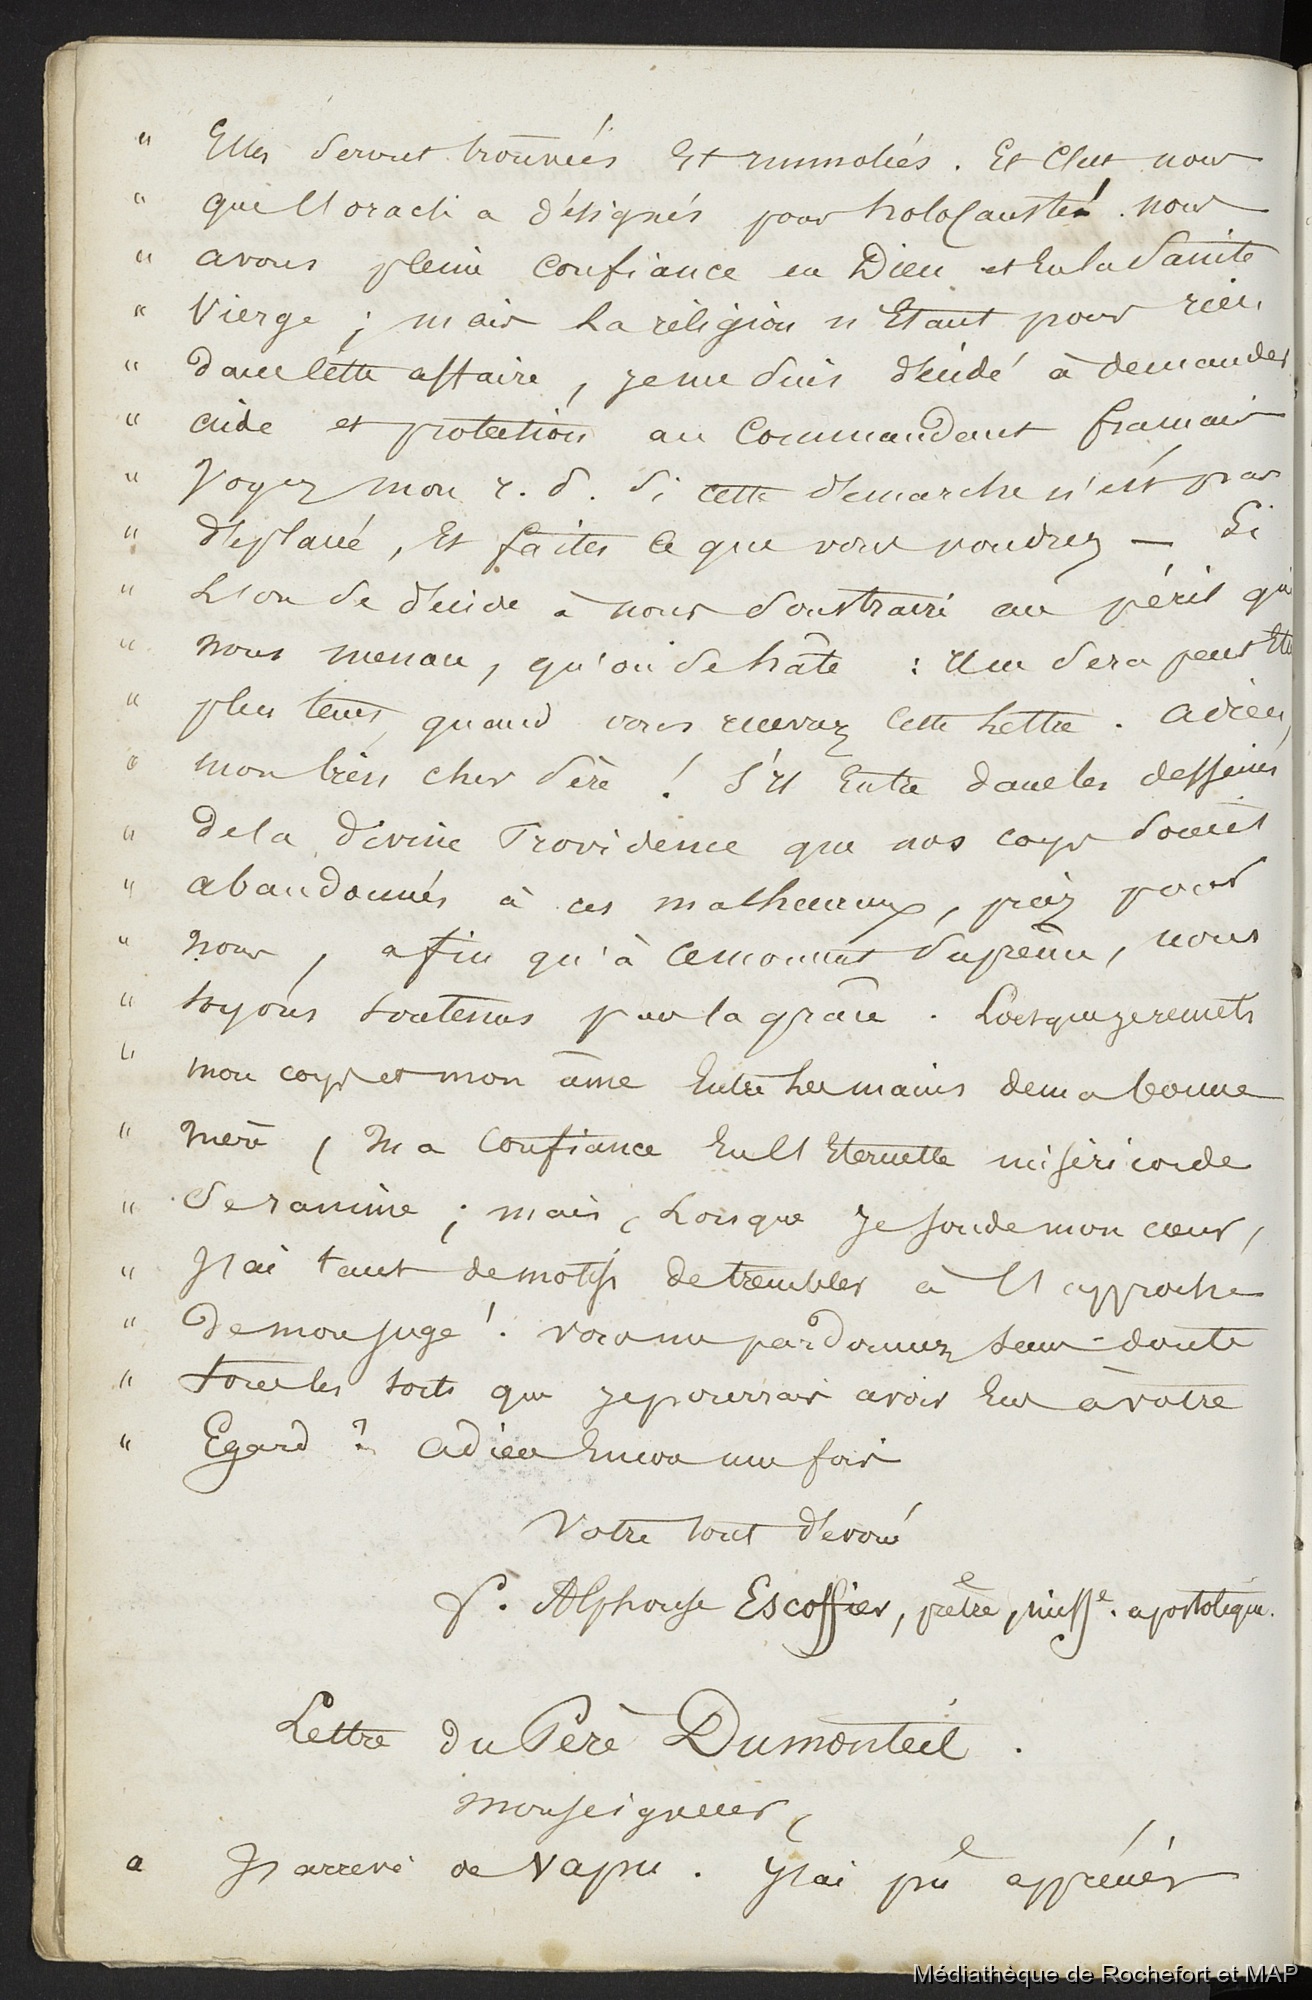 " Elles seront trouvées et immolées. Et c'est nous
" que l'oracle a désignés pour holocauste ! nous
" avons pleine confiance en Dieu et en la Sainte
" Vierge ; mais la réligion n'étant pour rien
" dans cette affaire, je me suis décidé à demander
" aide et protection au Commandant français
" Voyez mon r. S. si cette démarche n'est pas
" déplacée, et faites ce que vous voudrez — Si
" l'on se décide à nous soustraire au péril qui
" nous menace, qu'on se hâte : il ne sera peut être
" plus tems, quand vous recevrez cette lettre. adieu,
" mon très cher Père ! S'il entre dans les desseins
" de la divine Providence que nos corps soient
" abandonnés à ces malheureux, priez pour
" nous, afin qu'à ce moment suprême, nous
" soyons soutenus par la grâce. Lorsque je remets
" mon corps et mon âme entre les mains de ma bonne
" mère, ma confiance en l'Eternelle miséricorde
" se ranime ; mais, lorsque je sonde mon cœur,
" j'ai tant de motifs de trembler à l'approche
" de mon juge ! vous me pardonnez sans-doute
" tous les torts que je pourrais avoir eus à votre
" Egard ? adieu encore une fois
Votre tout dévoué
P. Alphonse Escoffier, prêtre, miss.e apostolique.
Lettre du Père Dumonteil.
Monseigneur,
" J'arrive de Vapu. J'ai pû apprécier
Médiathèque de Rochefort et MAP